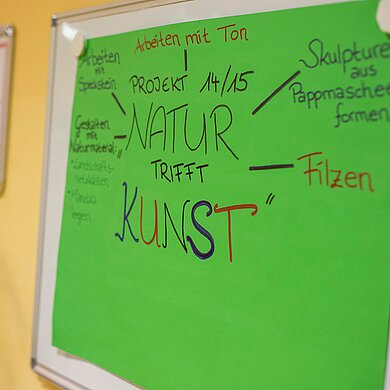 Arbeiten mit Ton
Arbeiten
mit
Speckstein
PROJEKT 14/15
Skulpturen
aus
Pappmaschee
formen
Gestalten
mit
Naturmaterial:
"NATUR
TRIFFT
KUNST"
Filzen
• Mandala
legen